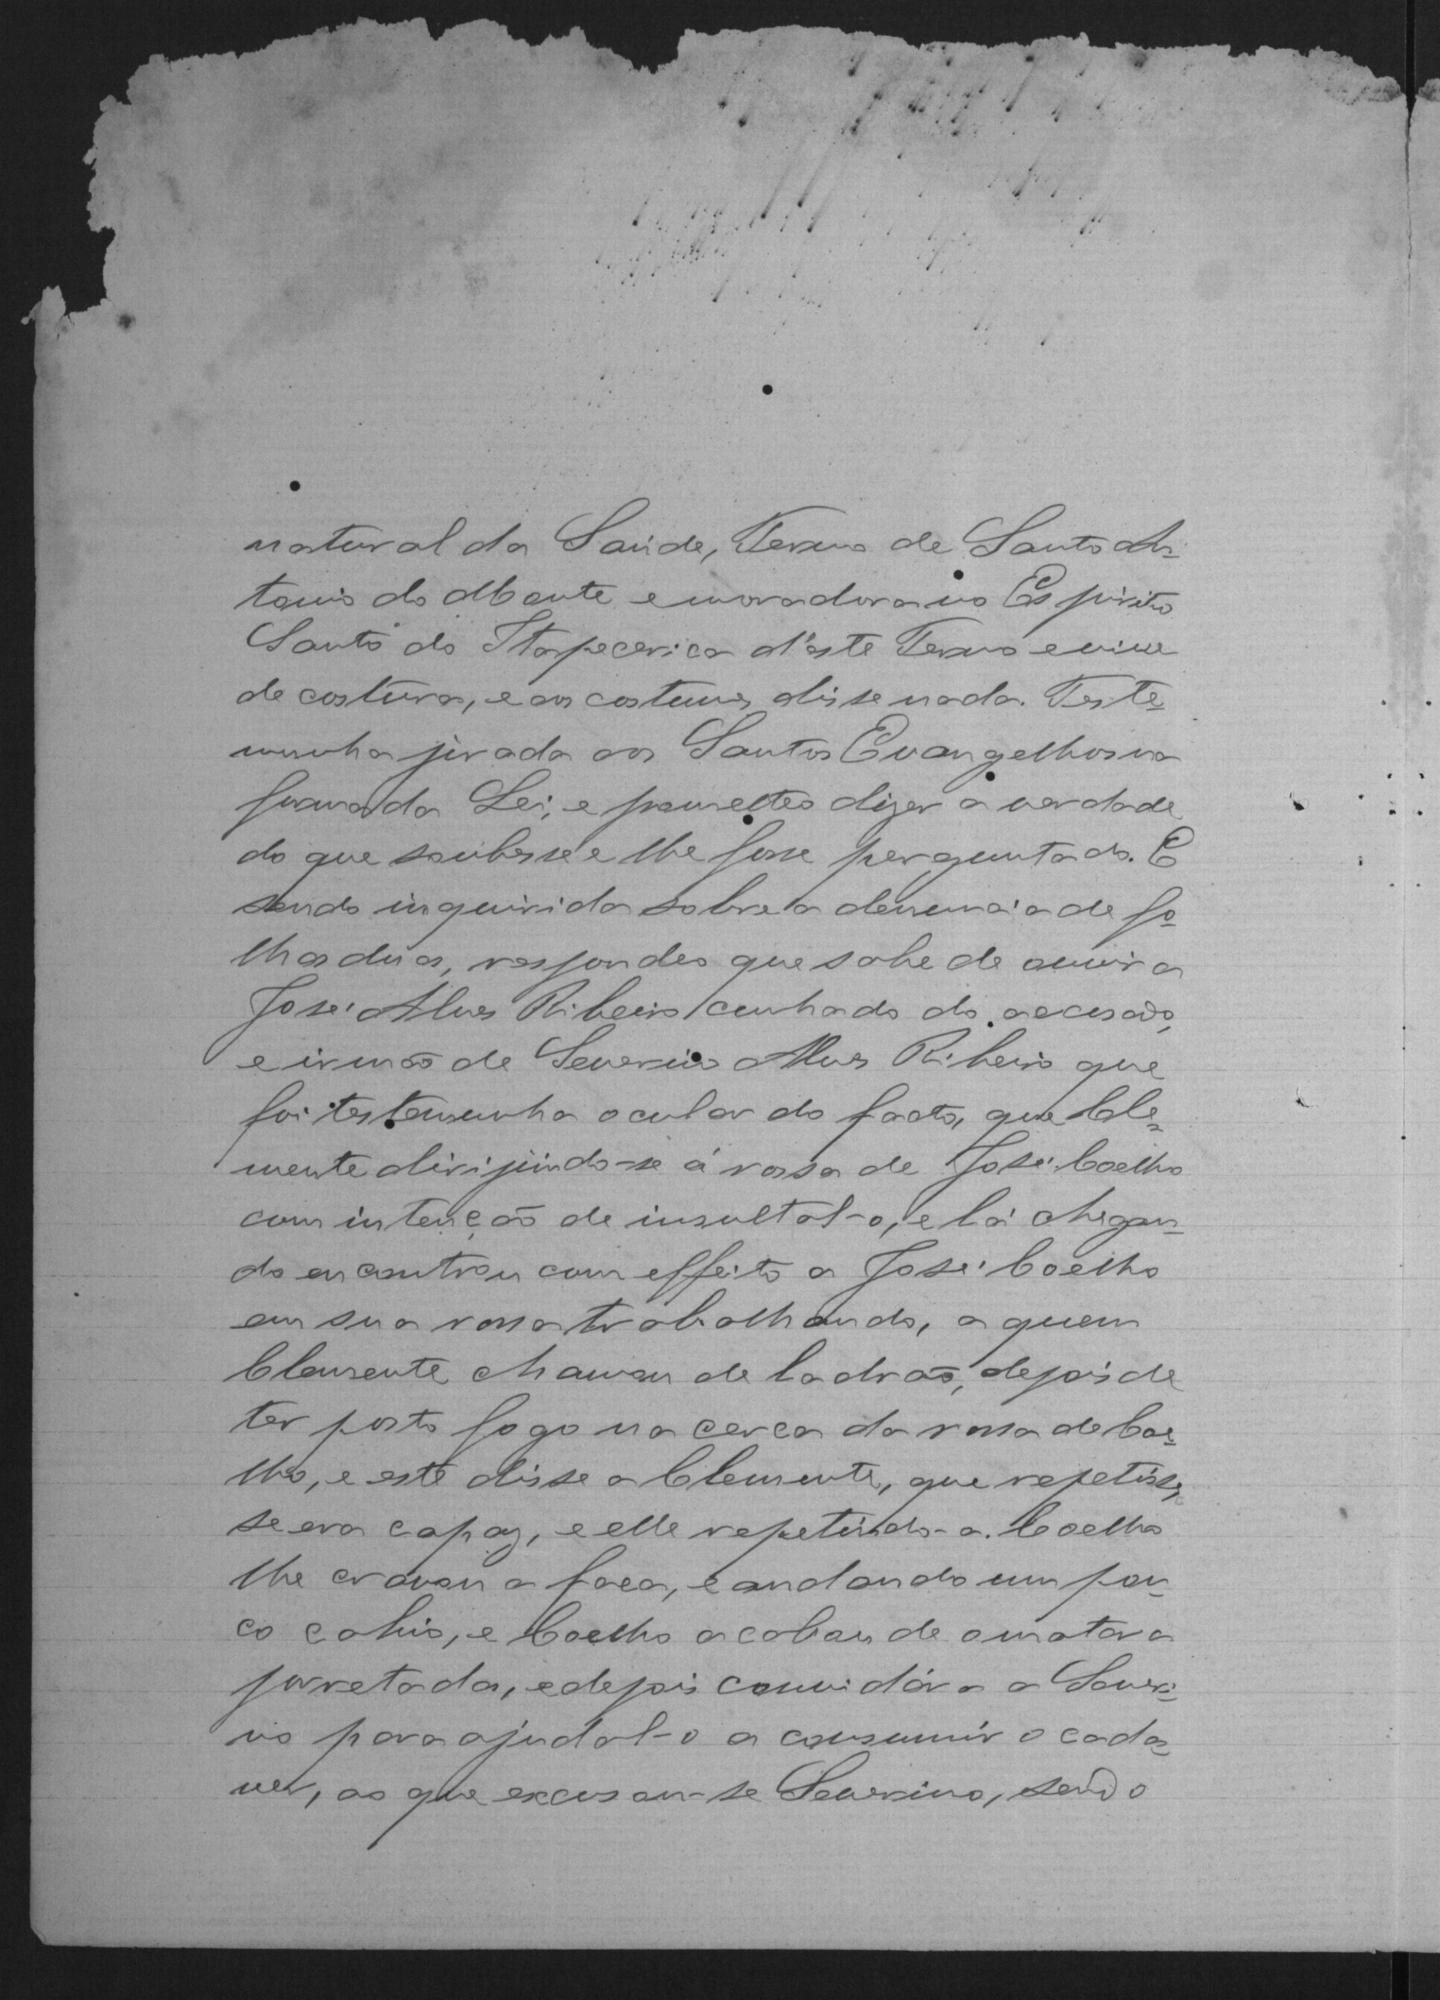 natural da Saúde, Termo de Santo An-
tonio do Monte e moradora no Espirito
Santo do Itapecerica d'este Termo e vive
de costura, e aos costumes disse nada. Teste-
munha jurada aos Santos Evangelhos na
forma da Lei, e prometteo dizer a verdade
do que soubesse e lhe fosse perguntado. E
sendo inquirida sobre a denuncia de fo-
lhas duas, respondeo que sabe de ouvir a
José Alves Ribeiro cunhado do accusado,
e irmão de Severino Alves Ribeiro que
foi testemunha ocular do facto, que Cle-
mente dirijindo-se á rossa de José Coelho
com intenção de insultal-o, e lá chegan-
do encontrou com effeito a José Coelho
em sua rossa trabalhando, a quem
Clemente chamou de ladrão, depois de
ter posto fogo na cerca da rossa de Coe-
lho, e este disse a Clemente, que repetisse,
se era capaz, e elle repetindo-a. Coelho
lhe cravou a faca, e andando um pou-
co cahio, e Coelho acabou de o matar a
porretada, e depois convidára a Severi-
no para ajudal-o a consumir o cada-
ver, ao que excusou-se Severino, sendo